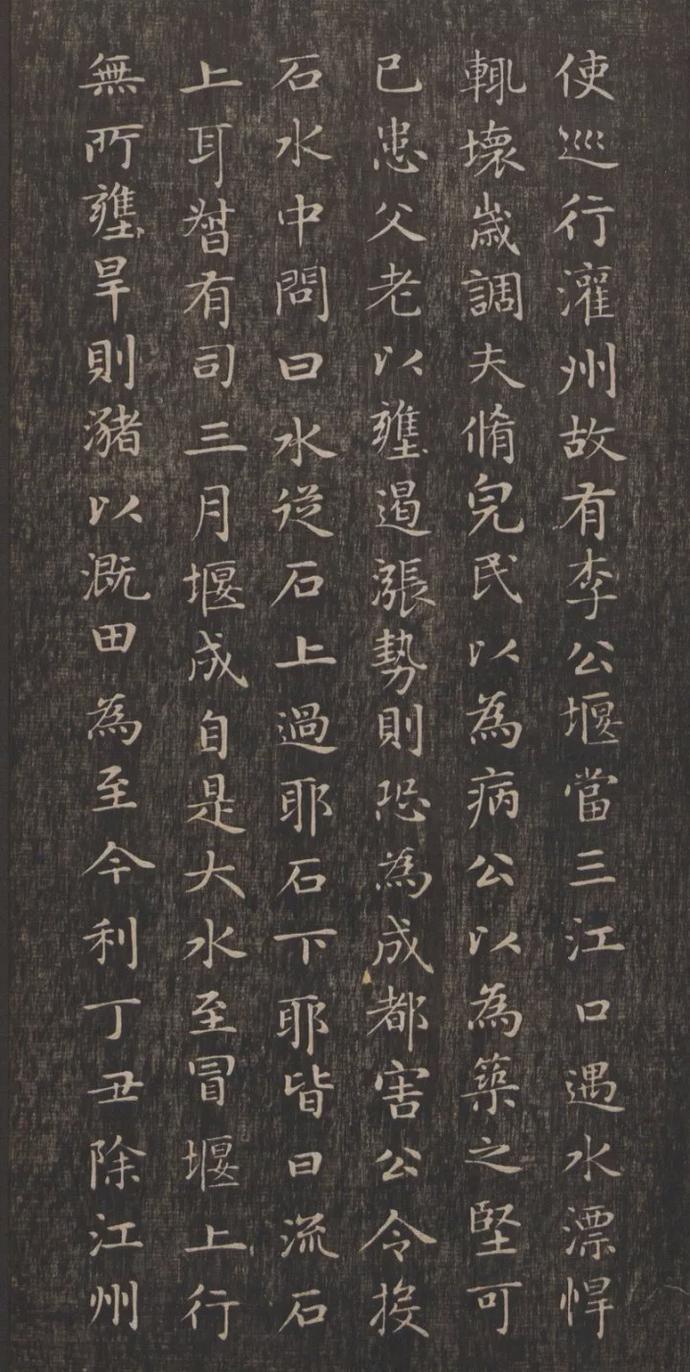 使巡行灌州故有李公堰當三江口遇水漂悍
輒壞歳調夫脩完民以為病公以為築之堅可
已患父老以壅遏漲勢則恐為成都害公令投
石水中問曰水從石上過耶石下耶皆曰流石
上耳督有司三月堰成自是大水至冒堰上行
無所壅旱則瀦以溉田為至今利丁丑除江州